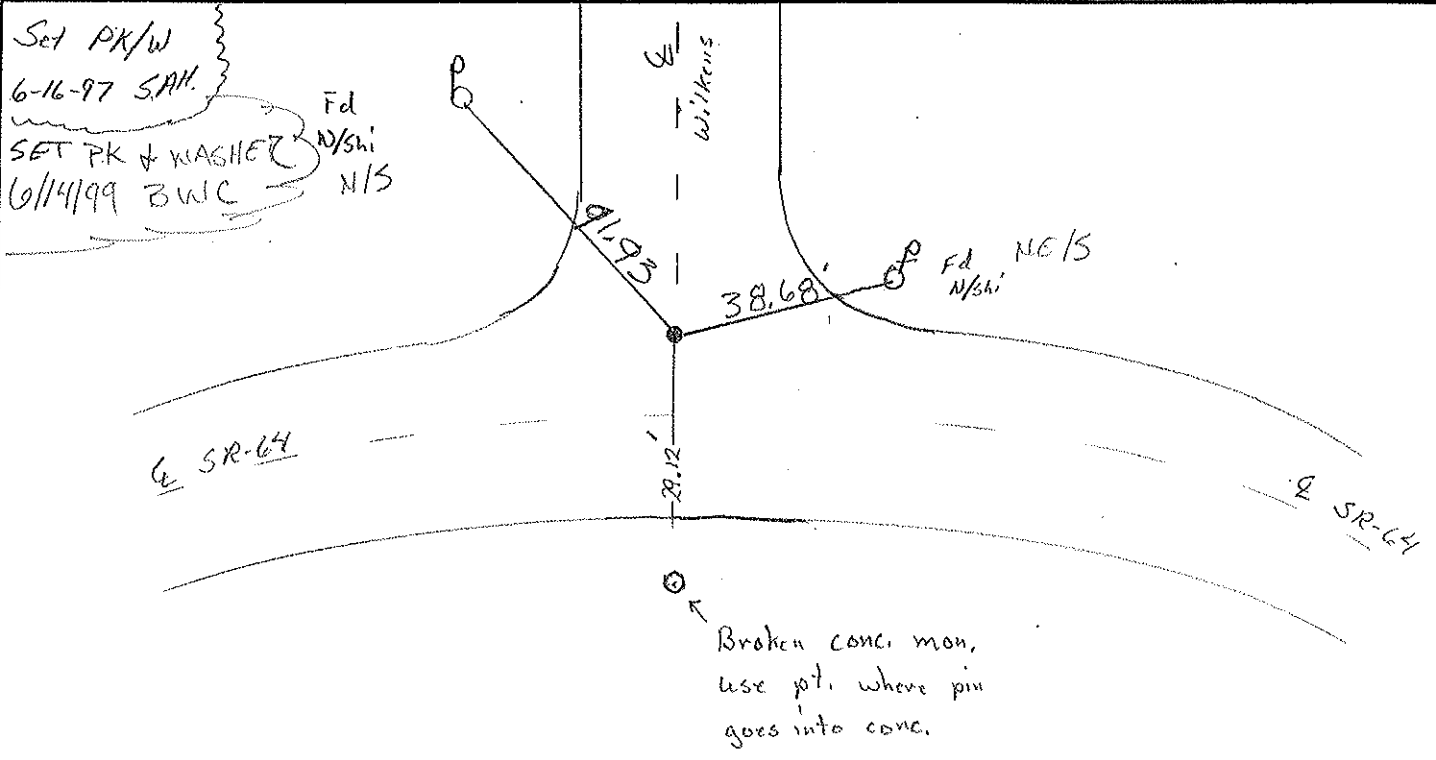 Set PK/W
6-16-97 S.A.H.
SET PK & WASHER
6/14/99 BWC
Fd
N/shi
N/S
℄
Wilkens
P
91.93
38.68'
P
Fd NE/S
N/shi
29.12'
℄ SR-64
℄ SR-64
Broken conc. mon.
use pt. where pin
goes into conc.